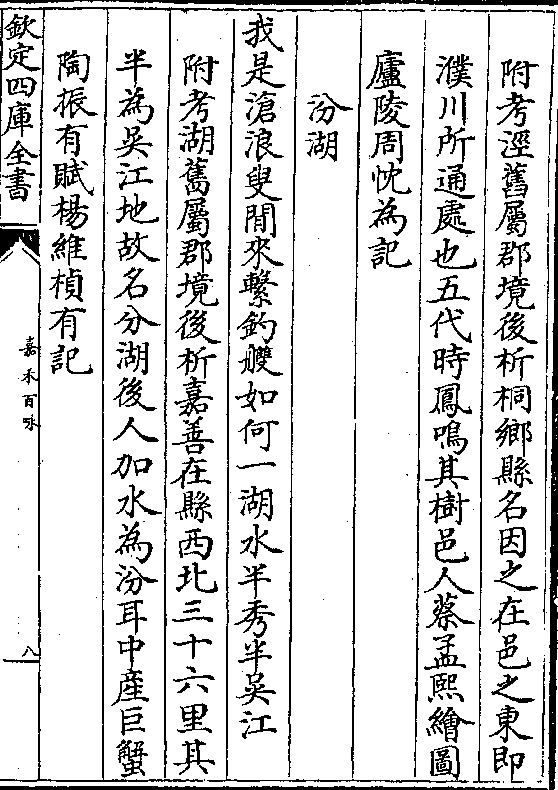 附考涇舊屬郡境後析桐鄉縣名因之在邑之東即
濮川所通處也五代時鳳鳴其樹邑人蔡孟熙繪圖
廬陵周忱為記
汾湖
我是滄浪叟閒來繫釣艭如何一湖水半秀半吳江
附考湖舊屬郡境後析嘉善在縣西北三十六里其
半為吳江地故名分湖後人加水為汾耳中産巨蟹
陶振有賦楊維楨有記
欽定四庫全書
嘉禾百咏
八